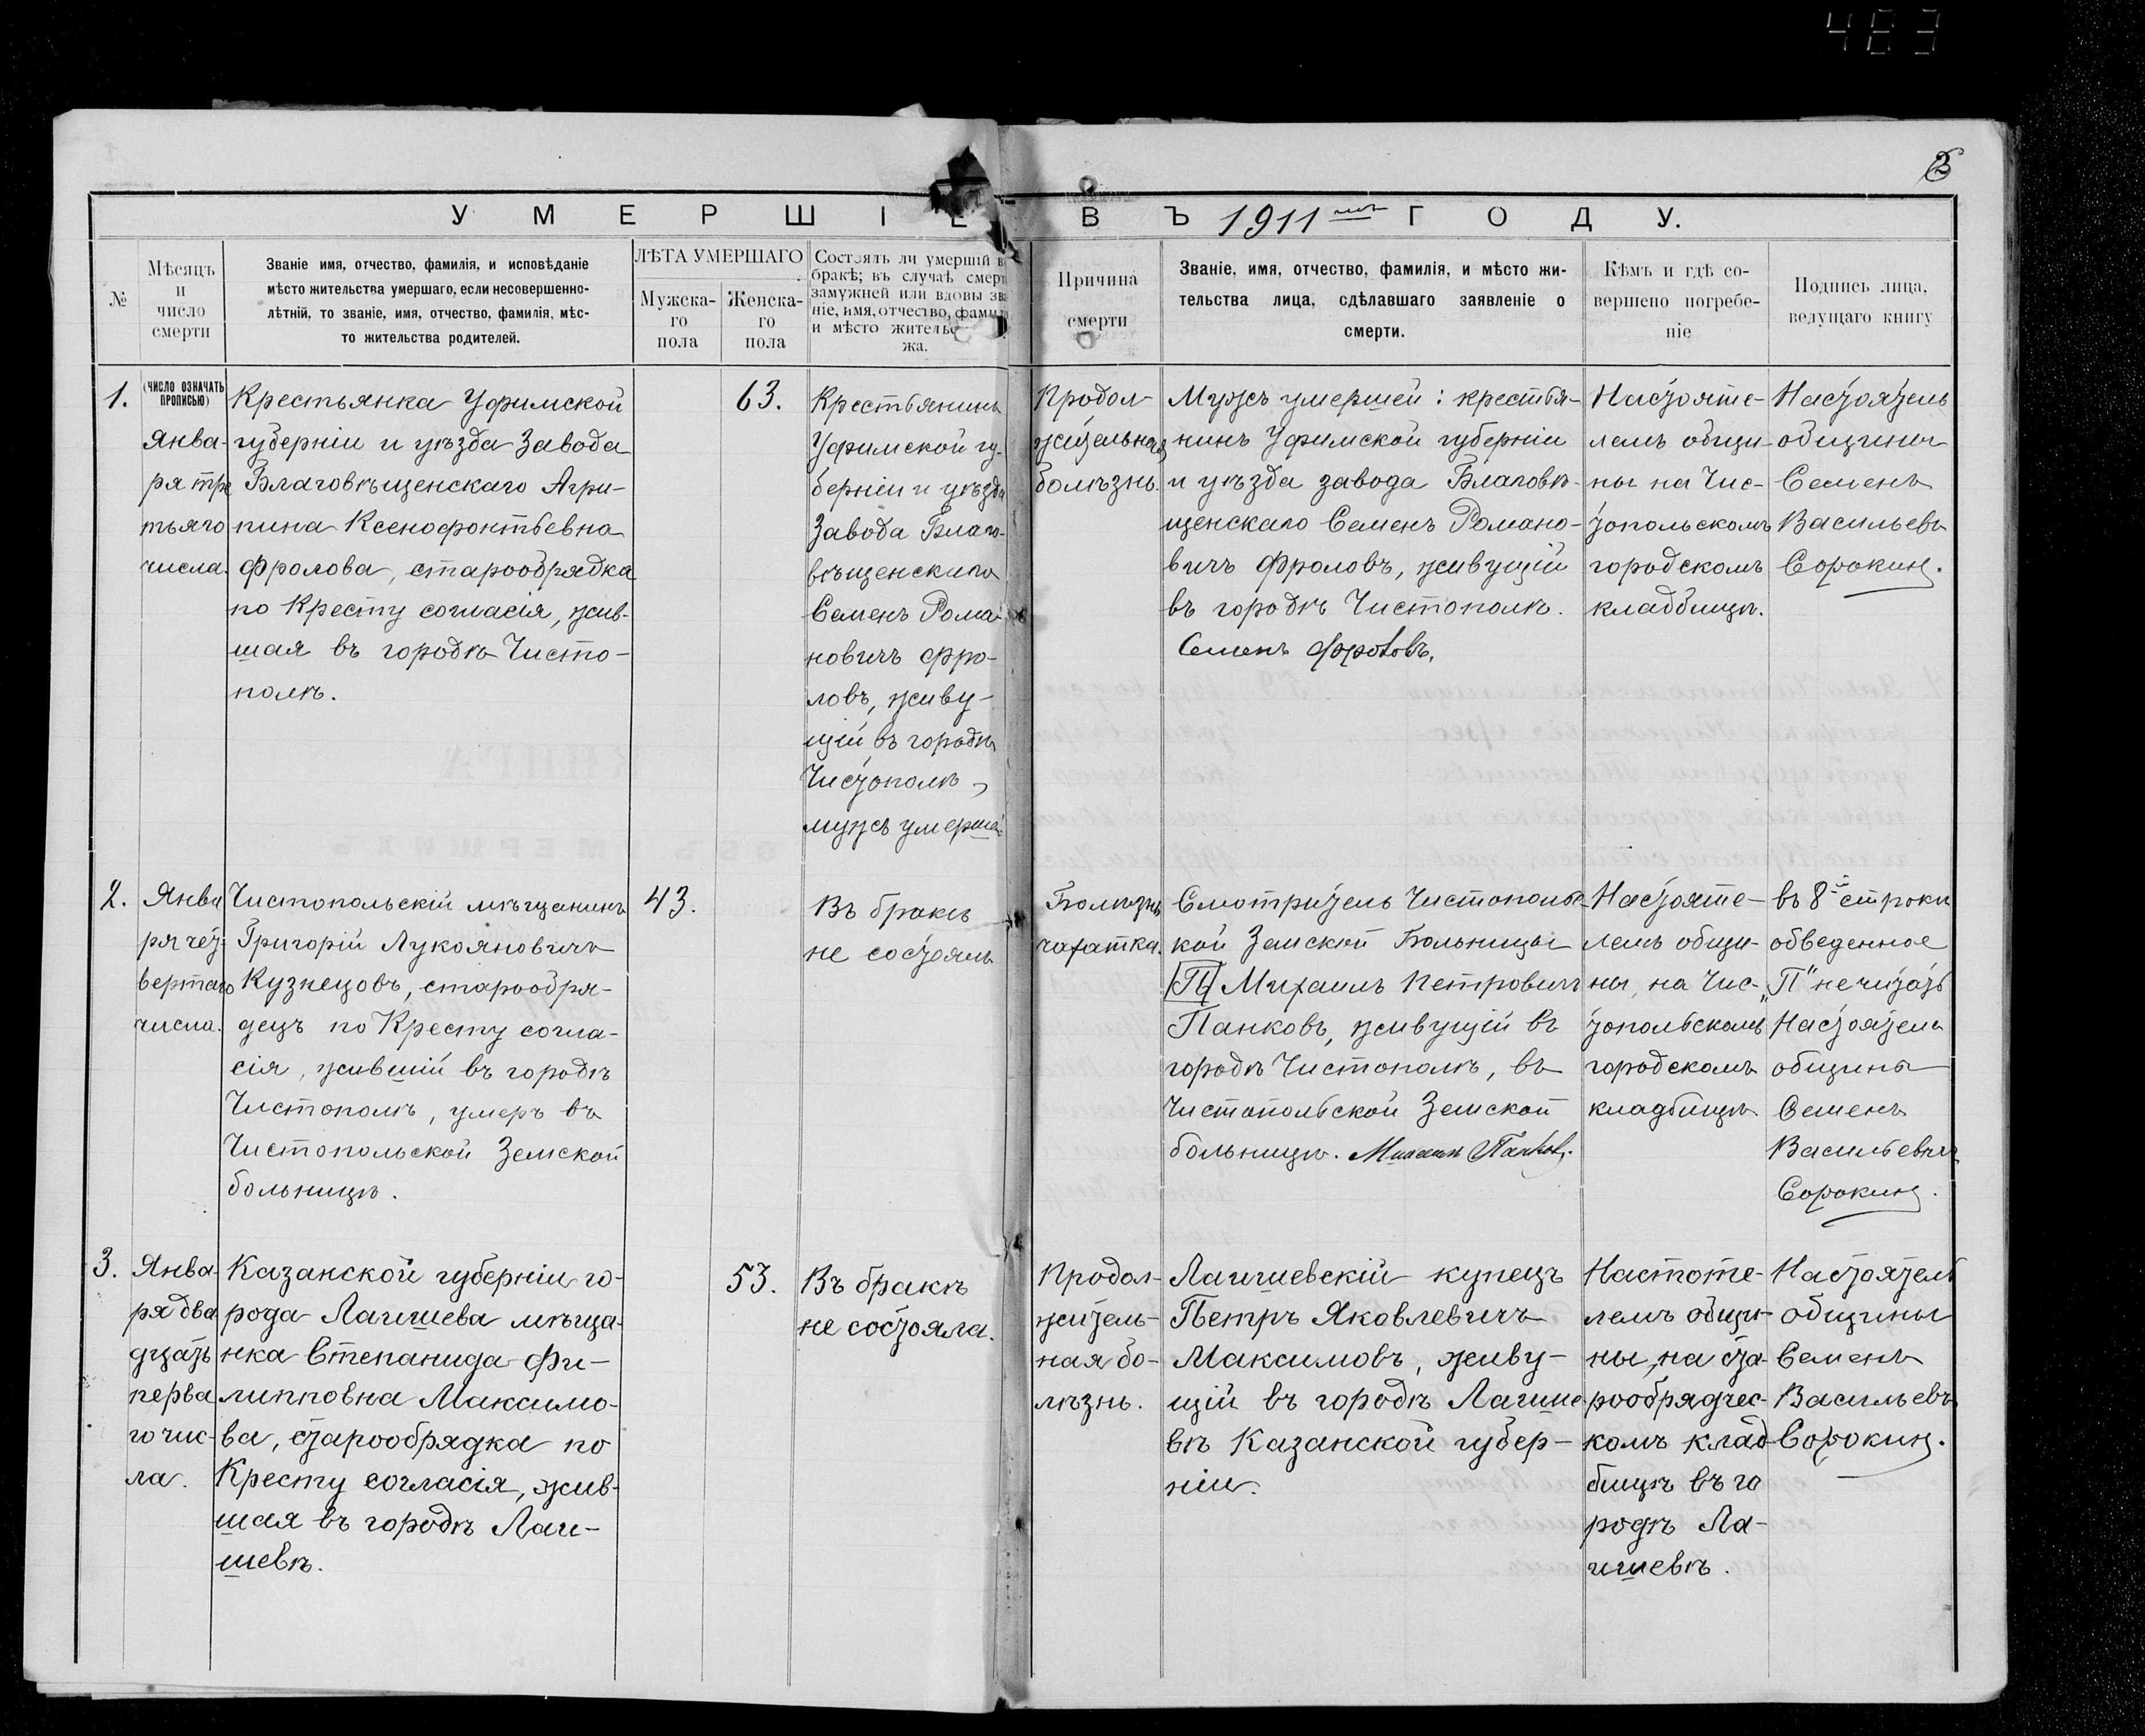 483
УМЕРШІЕ ВЪ 1911 ГОДУ.
№
Мѣсяцъ
и
число
смерти
Званіе имя, отчество, фамилія, и исповѣданіе
мѣсто жительства умершаго, если несовершенно-
лѣтній, то званіе, имя, отчество, фамилія, мѣс-
то жительства родителей.
ЛѢТА УМЕРШАГО
Мужска-
го
пола
Женска-
го
пола
Состоялъ ли умершій в
бракѣ; въ случаѣ смерт
замужней или вдовы зва
ніе, имя, отчество, фамил
и мѣсто жительс
жа.
Причина
смерти
Званіе, имя, отчество, фамилія, и мѣсто жи-
тельства лица, сдѣлавшаго заявленіе о
смерти.
Кѣмъ и гдѣ со-
вершено погребе-
ніе
Подпись лица,
ведущаго книгу
1.
(ЧИСЛО ОЗНАЧАТЬ
ПРОПИСЬЮ)
Янва-
ря тре
тьяго
числа.
Крестьянка Уфимской
губерніи и уѣзда Завода
Благовѣщенскаго Агри-
пина Ксенофонтьевна
Фролова, старообрядка
по Кресту согласія, жив-
шая въ городѣ Чисто-
полѣ.
63.
Крестьянинъ
Уфимской гу-
берніи и уѣзда
Завода Благо-
вѣщенскаго
Семенъ Рома-
новичъ Фро-
ловъ, живу-
щій въ городѣ
Чистополѣ,
мужъ умершей
Продол-
жительная
болѣзнь.
Мужъ умершей: крестья-
нинъ Уфимской губерніи
и уѣзда завода Благовѣ-
щенскаго Семенъ Романо-
вичъ Фроловъ, живущій
въ городѣ Чистополѣ.
Семенъ Фроловъ.
Настояте-
лемъ общи-
ны на Чис-
топольскомъ
городскомъ
кладбищѣ.
Настоятель
общины
Семенъ
Васильевъ
Сорокинъ.
2.
Янва
ря чет-
вертаго
числа.
Чистопольскій мѣщанинъ
Григорій Лукояновичъ
Кузнецовъ, старообря-
децъ по Кресту согла-
сія, жившій въ городѣ
Чистополѣ, умеръ въ
Чистопольской Земской
больницѣ.
43.
Въ бракѣ
не состоялъ
Болѣзнь
чахатка.
Смотритель Чистополь
кой Земской Больницы
П Михаилъ Петровичъ
Панковъ, живущій въ
городѣ Чистополѣ, въ
Чистопольской Земской
больницѣ. Михаилъ Панковъ.
Настояте-
лемъ общи-
ны, на Чис-
топольскомъ
городскомъ
кладбищѣ.
въ 8й строкѣ
обведенное
„П" не читать
Настоятель
общины
Семенъ
Васильевичъ
Сорокинъ.
3.
Янва-
ря два
дцать
перва
го чис-
ла.
Казанской губерніи го-
рода Лаишева мѣща-
нка Степанида Фи-
липповна Максимо-
ва, старообрядка по
Кресту согласія, жив-
шая въ городѣ Лаи-
шевѣ.
53.
Въ бракѣ
не состояла.
Продол-
житель-
ная бо-
лѣзнь.
Лаишевскій купецъ
Петръ Яковлевичъ
Максимовъ, живу-
щій въ городѣ Лаише
вѣ Казанской губер-
ніи.
Настоте-
лемъ общи-
ны, на ста-
рообрядчес-
комъ клад-
бищѣ въ го
родѣ Ла-
ишевѣ.
Настоятель
общины
Семенъ
Васильевъ
Сорокинъ.